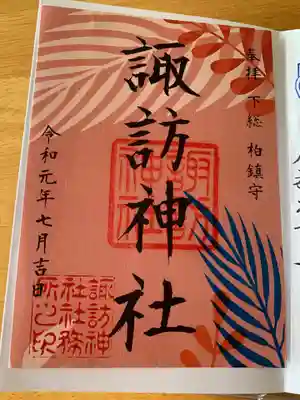 奉拝 下総 柏鎮守
諏訪神社
令和元年七月吉日
諏訪神社
諏訪神
社社務
所之印